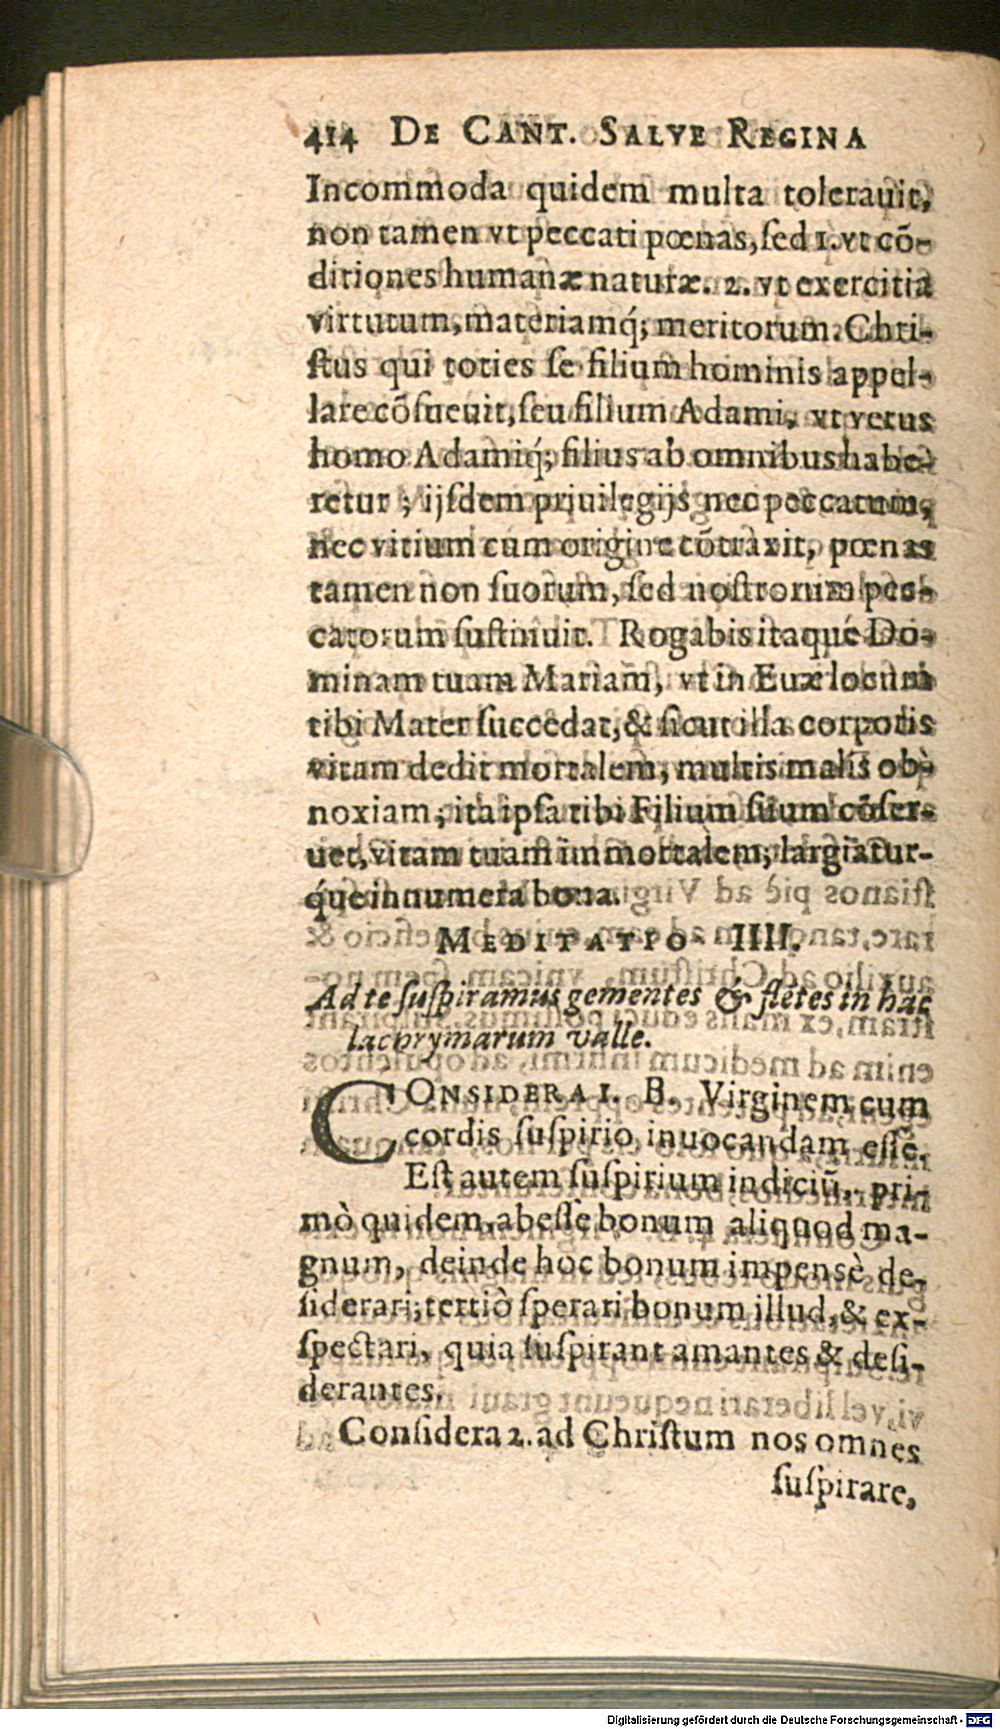 414 DE CANT. SALVE REGINA
Incommoda quidem multa tolerauit,
non tamen vt peccati pœnas, ſed 1. vt cõ-
ditiones humanæ naturæ. 2. vt exercitia
virtutum, materiamq́; meritorum. Chri-
ſtus qui toties ſe filium hominis appel-
lare cõſueuit, ſeu filium Adami, vt verus
homo Adamiq́; filius ab omnibus habe-
retur; ijſdem priuilegijs nec peccatum,
nec vitium cum origine cõtraxit, pœnas
tamen non ſuorum, ſed noſtrorum pec-
catorum ſuſtinuit. Rogabis itaqué Do-
minam tuam Mariam, vt in Euæ locum
tibi Mater ſuccedat, & ſicut illa corporis
vitam dedit mortalem, multis malis ob-
noxiam; ita ipſa tibi Filium ſuum cõſer-
uet, vitam tuam immortalem, largiatur-
q́ue innumera bona.
MEDITATIO IIII.
Ad te ſuſpiramus gementes & flẽtes in hac
lacrymarum valle.
CONSIDERA 1. B. Virginem cum
cordis ſuſpirio inuocandam eſſe.
Eſt autem ſuſpirium indiciũ, pri-
mò quidem, abeſſe bonum aliquod ma-
gnum, deinde hoc bonum impensè de-
ſiderari; tertiò ſperari bonum illud, & ex-
ſpectari, quia ſuſpirant amantes & deſi-
derantes.
Conſidera 2. ad Chriſtum nos omnes
ſuſpirare,
Digitalisierung gefördert durch die Deutsche Forschungsgemeinschaft - DFG